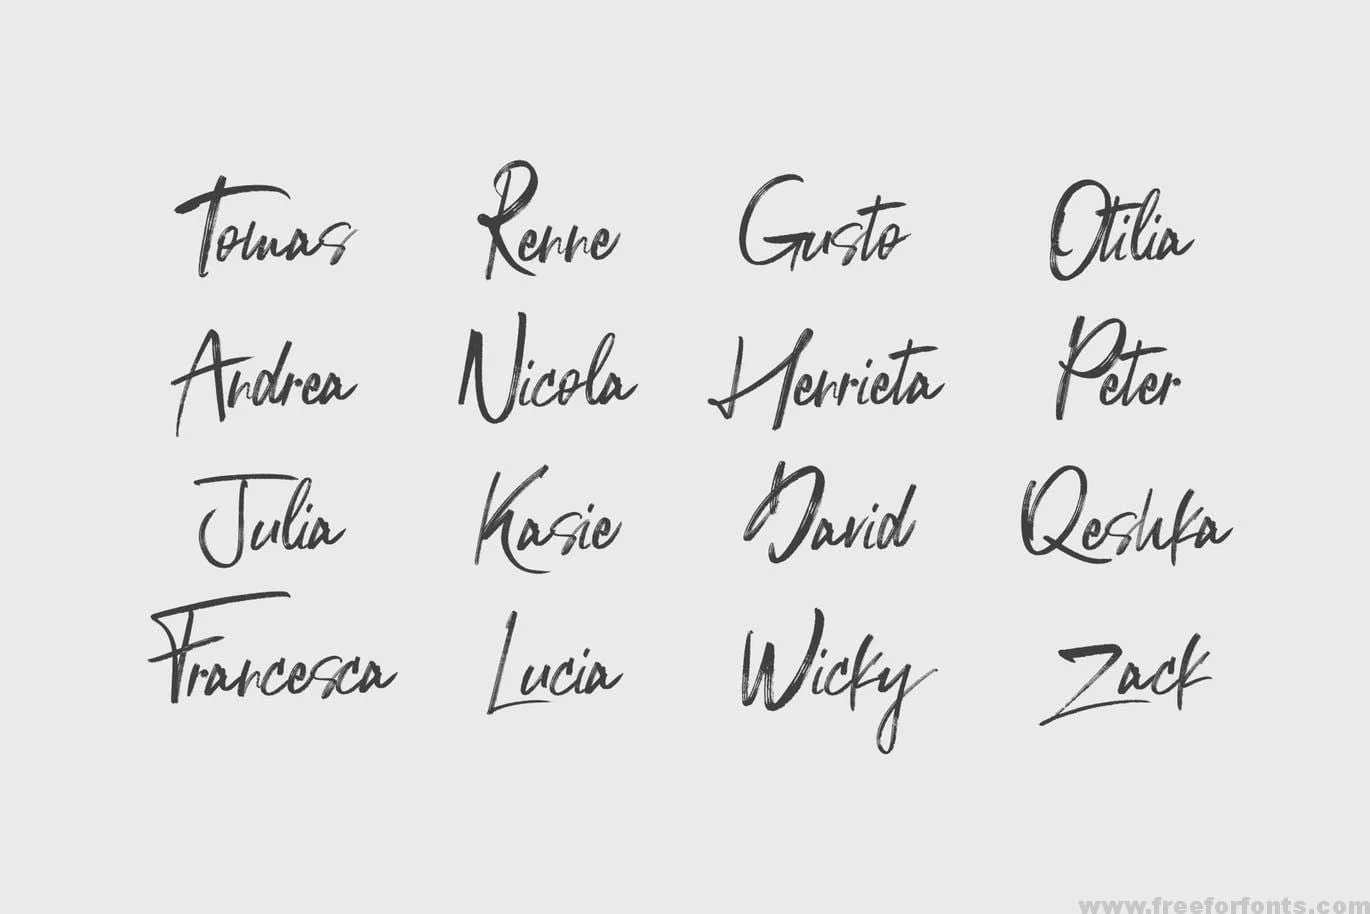 Tomas Renne Gusto Otilia
Andrea Nicola Henrieta Peter
Julia Kasie David Qeshka
Francesca Lucia Wicky Zack
www.freeforfonts.com